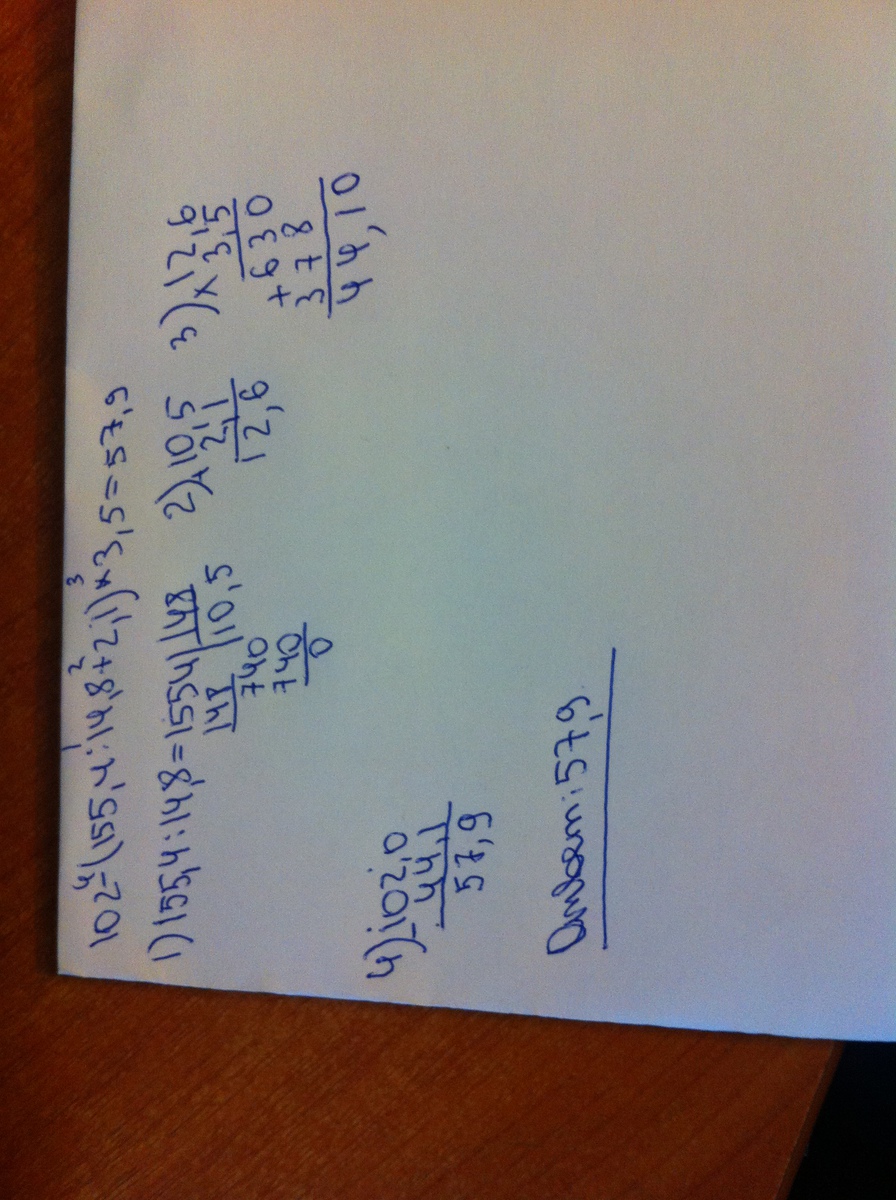 102-(155,4:14,8+2,1)×3,5=57,9
4 1 2 3
1)155,4:14,8=1554|148
148 |10,5
740
740
0
2)+10,5
2,1
12,6
3)×12,6
3,5
+630
378
44,10
4)-102,0
44,1
57,9
Ответ:57,9.